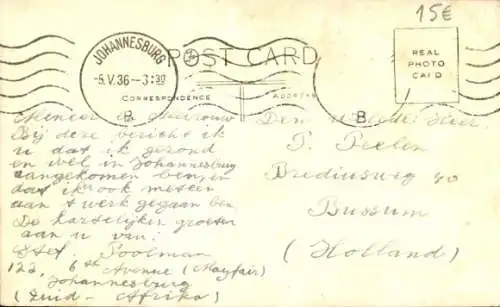 15€
JOHANNESBURG
5.V.36 - 3:30
B.
B
POST CARD
CORRESPONDENCE
ADDRESS
REAL
PHOTO
CARD
Meneer & Mevrouw
Bij deze bericht ik
u dat ik gezond
en wel in Johannesburg
aangekomen ben, en
dat ik ook meteen
aan t werk gegaan ben
De hartelijken groeten
aan u van:
Poolman
122, 6th Avenue (Mayfair)
Johannesburg
(Zuid - Afrika)
Den Heer
P. Peelen
Brediusweg 40
Bussum
(Holland)